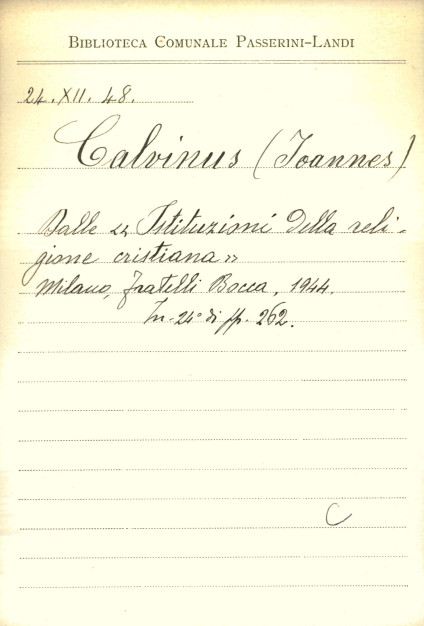 BIBLIOTECA COMUNALE PASSERINI-LANDI
24. XII. 48.
Calvinus (Joannes)
Dalle << Istituzioni della reli-
gione cristiana >>
Milano, Fratelli Bocca, 1944.
In-24° di pp. 262.
C